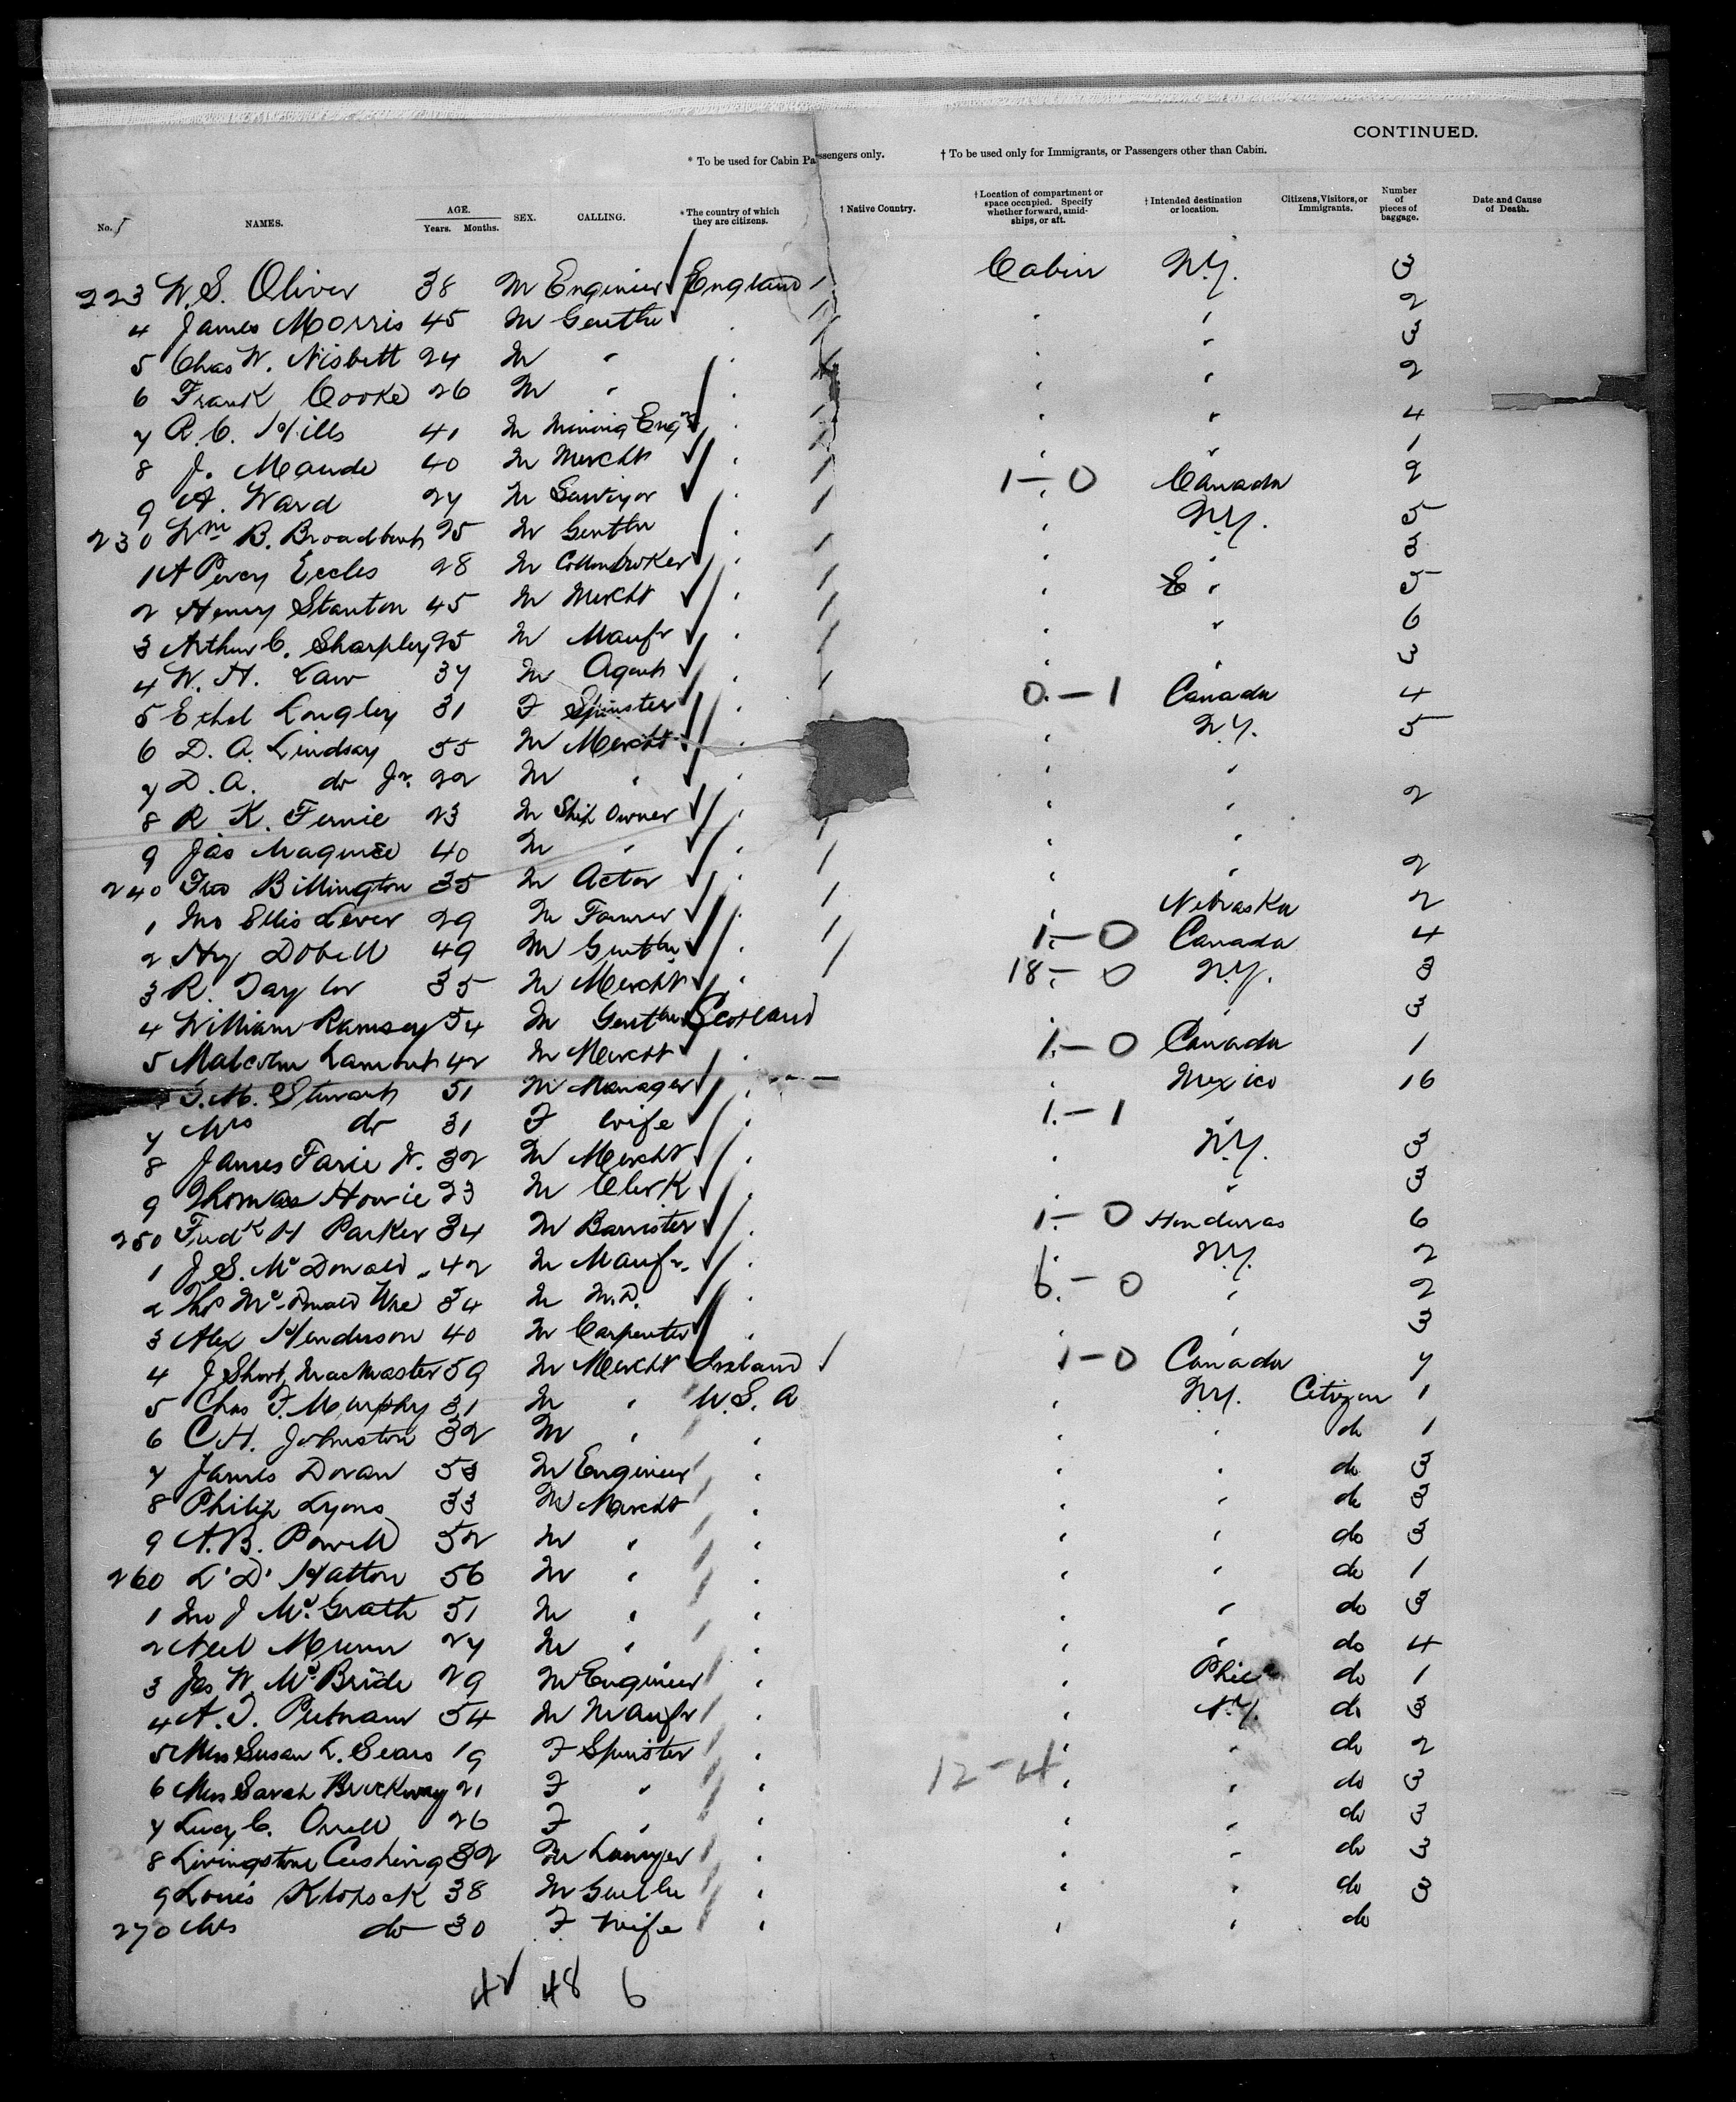 CONTINUED.
* To be used for Cabin Passengers only. † To be used only for Immigrants, or Passengers other than Cabin.
No. NAMES. AGE. Years. Months. SEX. CALLING. * The country of which they are citizens. † Native Country. † Location of compartment or space occupied. Specify whether forward, amidships, or aft. † Intended destination or location. Citizens, Visitors, or Immigrants. Number of pieces of baggage. Date and Cause of Death.
223 W. S. Oliver 38 M Engineer England Cabin N.Y. 3
4 James Morris 45 M Gentln " " 2
5 Chas W. Nisbett 24 M " " " 3
6 Frank Cooke 26 M " " " 2
7 A. C. Hills 41 M Mining Engr " " 4
8 J. Maude 40 M Mercht " " 1
9 A. Ward 27 M Surveyor 1-0 Canada 2
230 Wm B. Broadbent 25 M Gentln " N.Y. 5
1 A Percy Eccles 28 M Cottonbroker " " 3
2 Henry Stanton 45 M Mercht " " 5
3 Arthur C. Sharpley 25 M Manfr " " 6
4 W. H. Law 37 M Agent " " 3
5 Ethel Longley 31 F Spinster 0-1 Canada 4
6 D. A. Lindsay 55 M Mercht " N.Y. 5
7 D. A. do Jr. 22 M " " "
8 R. K. Fernie 23 M Ship Owner " " 2
9 Jas Maguire 40 M " " "
240 Fred Billington 35 M Actor " " 2
1 Jno Ellis Lever 29 M Farmer " Nebraska 2
2 Hy Dobell 49 M Gentln 1-0 Canada 4
3 R. Taylor 35 M Mercht 18-0 N.Y. 3
4 William Ramsey 54 M Gentln Scotland " " 3
5 Malcolm Lamont 42 M Mercht " 1-0 Canada 1
M. Stewart 51 M Manager " " Mexico 16
7 Mrs do 31 F Wife " 1-1
8 James Farie Jr. 32 M Mercht " " N.Y. 3
9 Thomas Howie 23 M Clerk " " " 3
250 Fredk H Parker 34 M Barrister " 1-0 Honduras 6
1 J. S. McDonald 42 M Manfr. " " N.Y. 2
2 Thos 34 M M.D. 6-0 " 2
3 Alex Henderson 40 M Carpenter " " " 3
4 J Short MacMaster 59 M Mercht Ireland 1-0 Canada 7
5 Chas F. Murphy 31 M " U.S. A " N.Y. Citizen 1
6 C H. Johnston 32 M " " " " do 1
7 James Doran 53 M Engineer " " " do 3
8 Philip Lyons 33 M Mercht " " " do 3
9 A. B. Powell 52 M " " " " do 3
260 L. D. Hatton 56 M " " " " do 1
1 Jno J McGrath 51 M " " " " do 3
2 Neel Munn 27 M " " " " do 4
3 Jas W. McBride 29 M Engineer " " Phila do 1
4 A. D. Putnam 54 M Manfr " " N.Y. do 3
5 Miss Susan L. Sears 19 F Spinster " " " do 2
6 Miss Sarah Brockway 21 F " " 12-4 " " do 3
7 Lucy C. Orrell 26 F " " " " do 3
8 Livingstone Cushing 32 M Lawyer " " " do 3
9 Louis Klopsck 38 M Gentln " " " do 3
270 Mrs do 30 F Wife " " " do
42 48 6